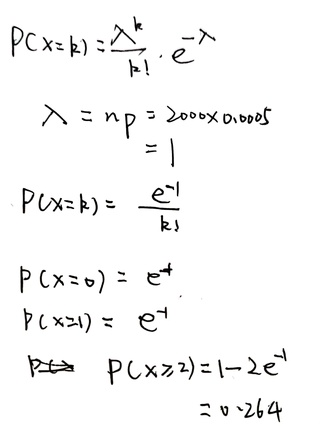 P(x=k) = λ^k / k! · e^-λ
λ = np = 2000×0.0005
= 1
P(x=k) = e^-1 / k!
P(x=0) = e^-1
P(x=1) = e^-1
P(x≥2) = 1-2e^-1
= 0.264